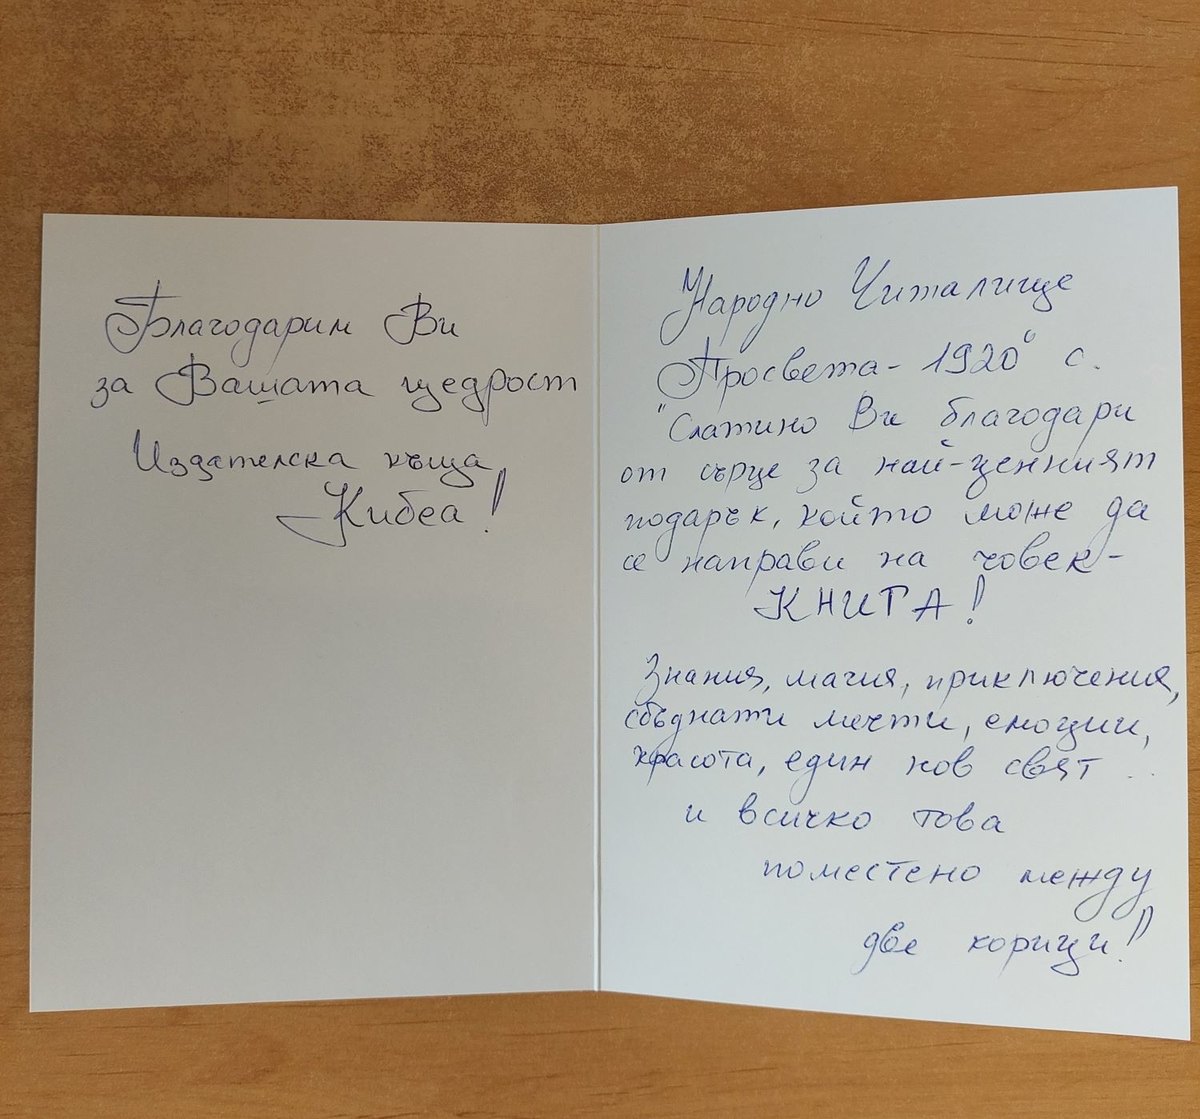 Благодарим Ви
за Вашата щедрост
Издателска къща
Кибеа!
Народно Читалище
Просвета - 1920" с.
"Слатино Ви благодари
от сърце за най-ценният
подарък, който може да
се направи на човек -
КНИГА!
Знания, магия, приключения,
сбъднати мечти, емоции,
красота, един нов свят ...
и всичко това
поместено между
две корици!